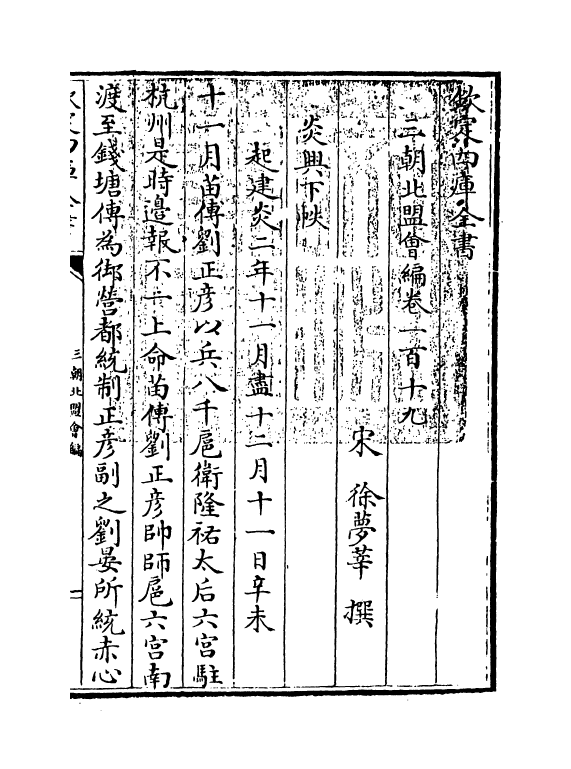 欽定四庫全書
三朝北盟會編卷一百十九
宋 徐夢莘 撰
炎興下帙
起建炎二年十一月盡十二月十一日辛未
十一月苗傅劉正彦以兵八千扈衛隆祐太后六宮駐
杭州是時邊報不一上命苗傅劉正彦帥師扈六宮南
渡至錢塘傅為御營都統制正彦副之劉晏所統赤心
三朝北盟會編
一